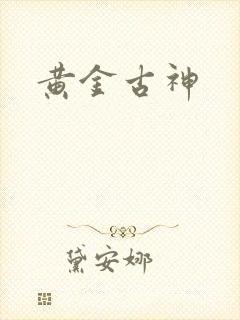 黄金古神
黛安娜